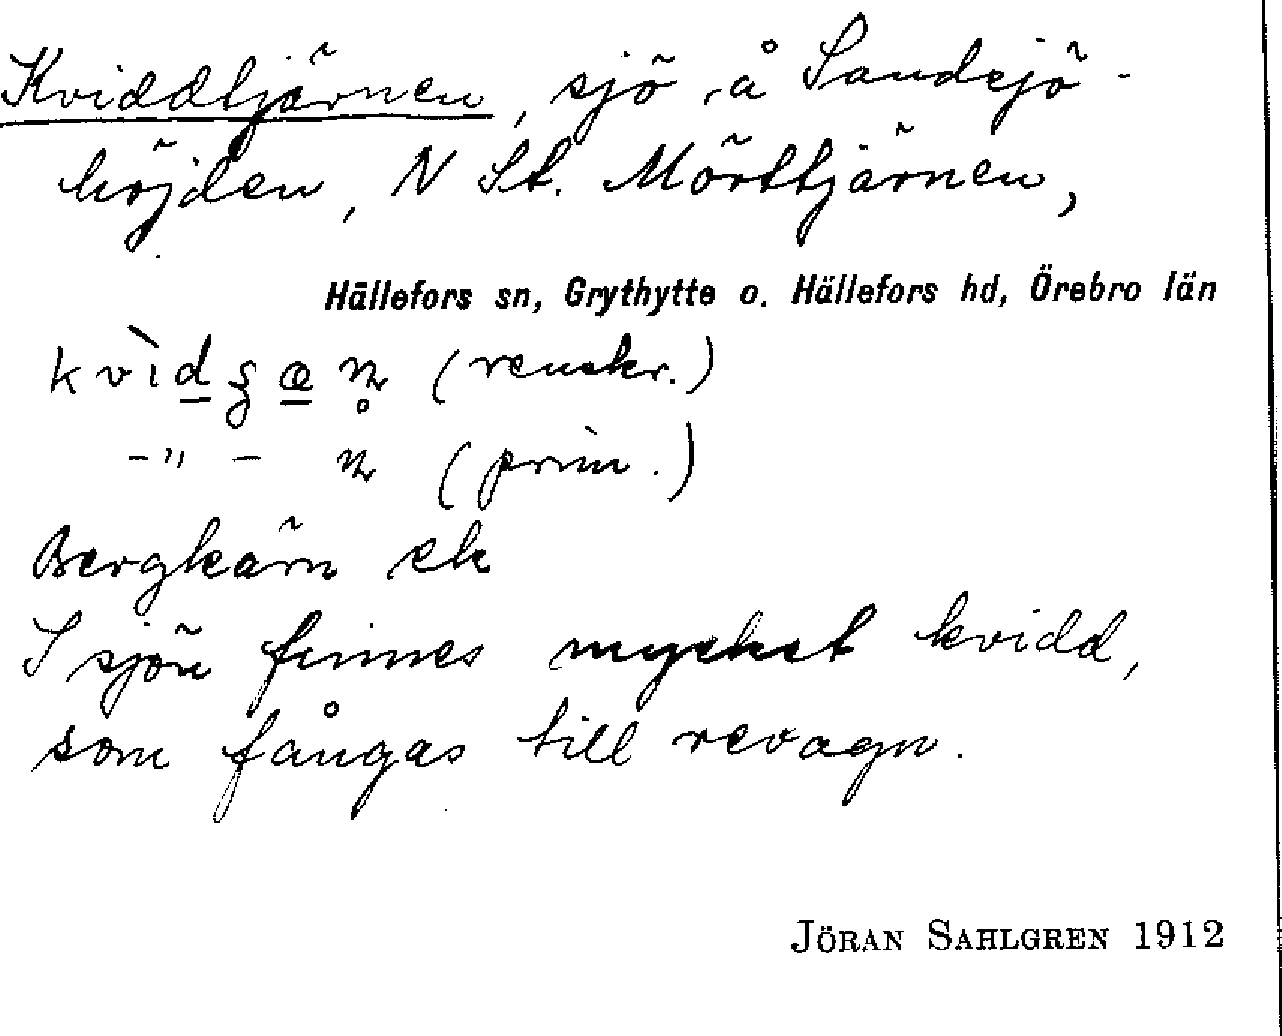 Kviddtjärnen, sjö å Sandsjö-
höjden, N St. Mörttjärnen,
Hällefors sn, Grythytte o. Hällefors hd, Örebro län
(renskr.)
-"- (prim.)
Bergkärn ek
I sjön finnes mycket kvidd,
som fångas till revagn.
JÖRAN SAHLGREN 1912